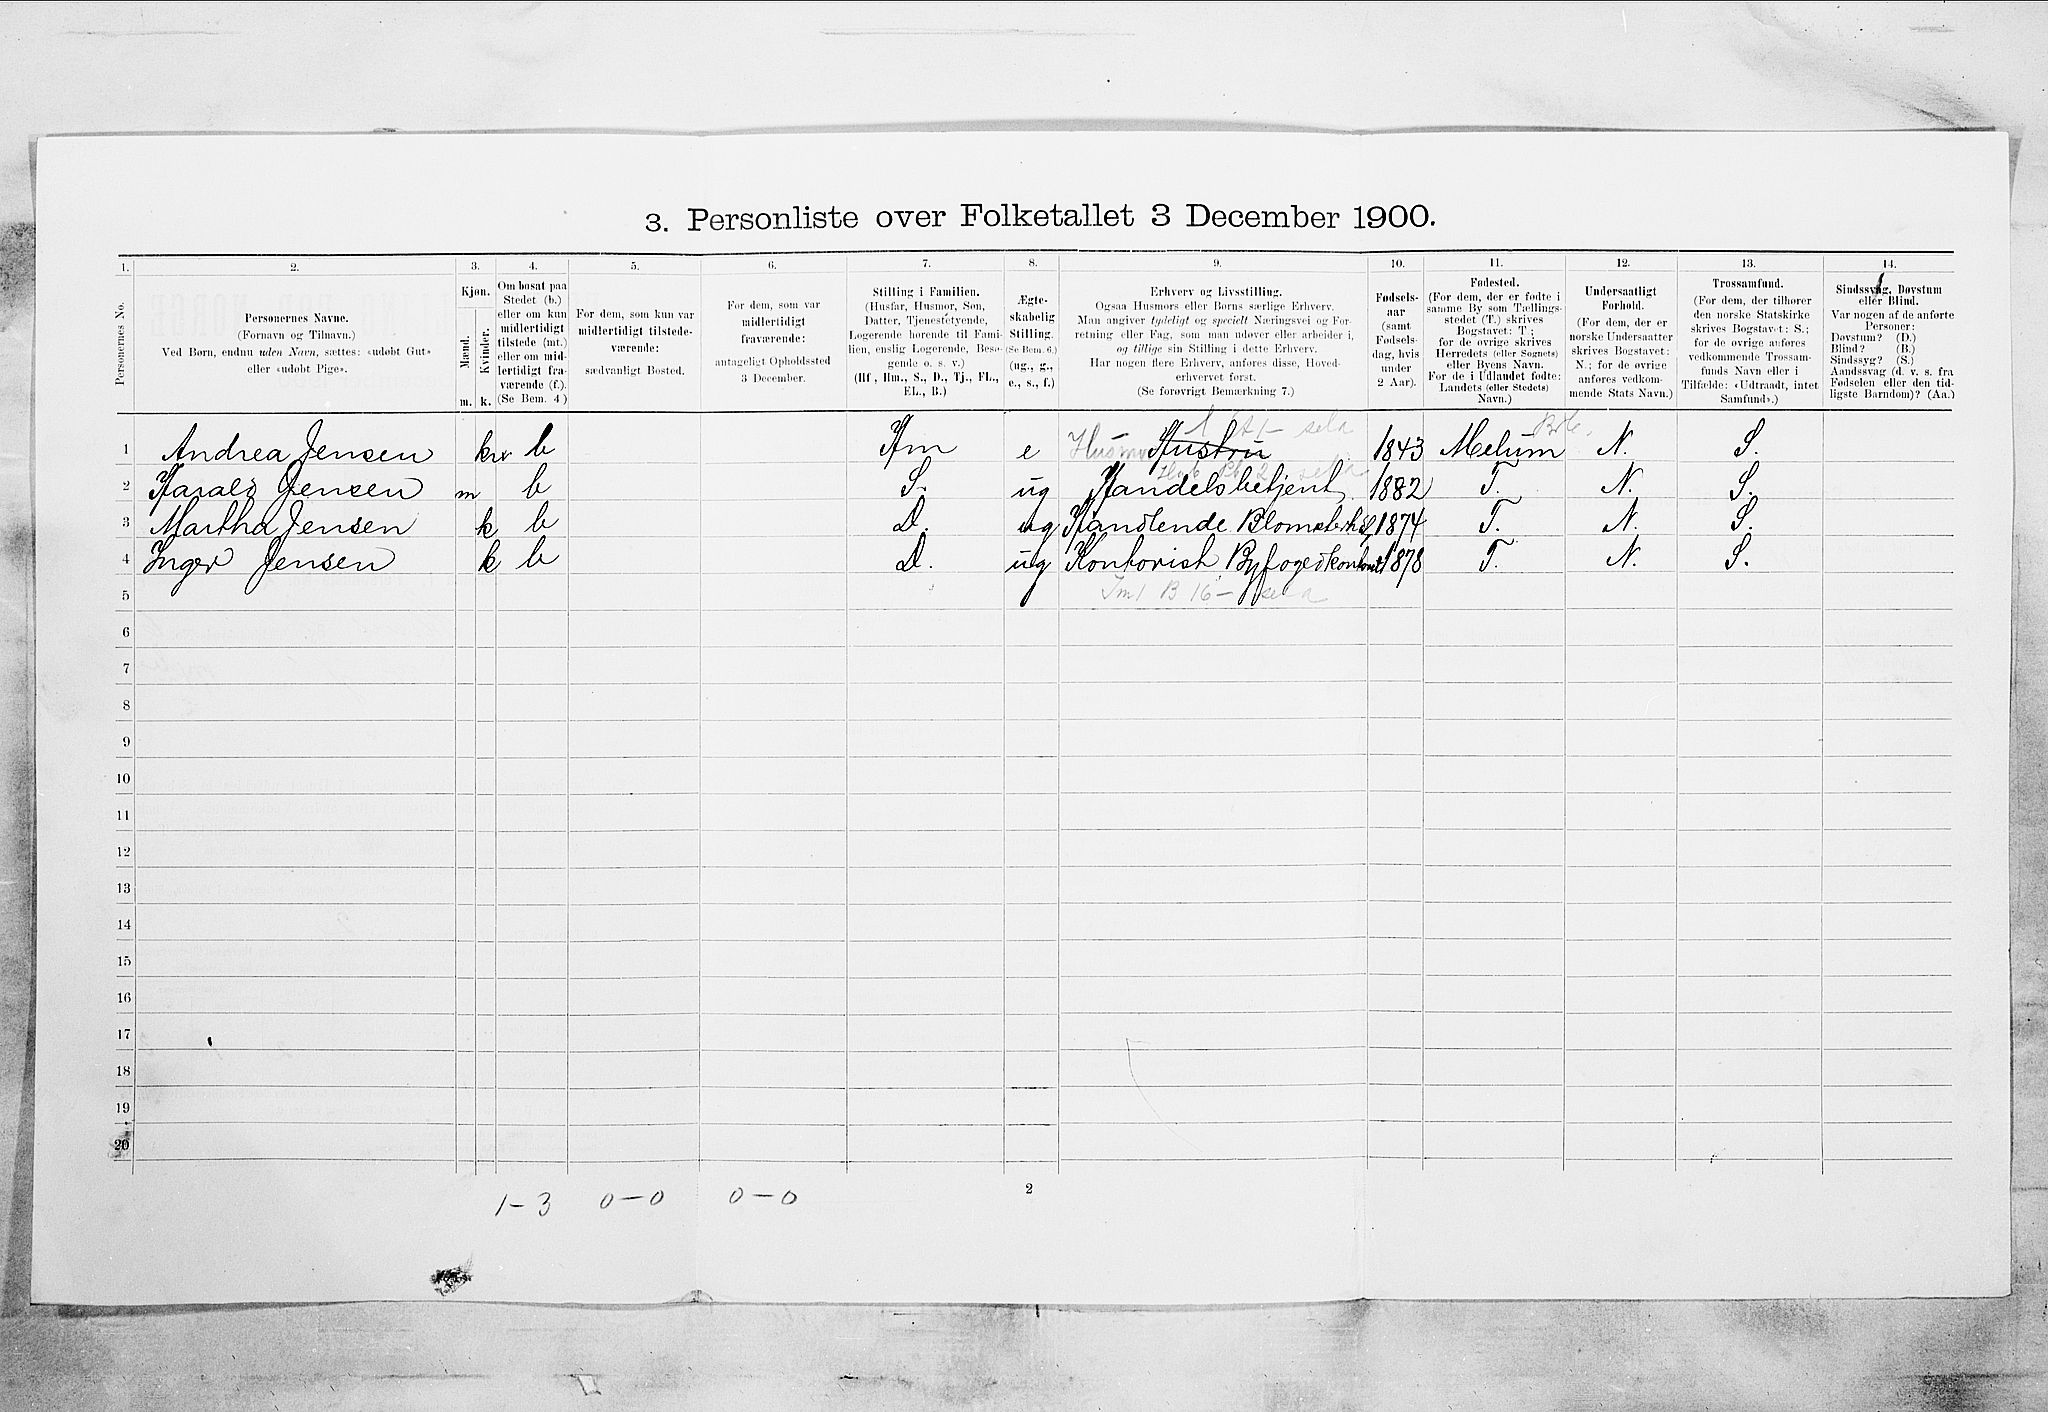 3. Personliste over Folketallet 3 December 1900.
1. 2. 3. 4. 5. 6. 7. 8. 9. 10. 11. 12. 13. 14.
Personernes No.
Personernes Navne.
(Fornavn og Tilnavn.)
Ved Børn, endnu uden Navn, sættes: «udøbt Gut»
eller «udøbt Pige».
Kjøn.
Mænd.
Kvinder.
m. k.
Om bosat paa
Stedet (b.)
eller om kun
midlertidigt
tilstede (mt.)
eller om mid-
lertidigt fra-
værende (f.).
(Se Bem. 4)
For dem, som kun var
midlertidigt tilstede-
værende:
sædvanligt Bosted.
For dem, som var
midlertidigt
fraværende:
antageligt Opholdssted
3 December.
Stilling i Familien.
(Husfar, Husmor, Søn,
Datter, Tjenestetyende,
Logerende hørende til Fami-
lien, enslig Logerende, Besø-
gende o. s. v.)
(Hf, Hm., S., D., Tj., FL.,
EL., B.)
Ægte-
skabelig
Stilling.
(Se Bem. 6.)
(ug., g.,
e., s., f.)
Erhverv og Livsstilling.
Ogsaa Husmors eller Børns særlige Erhverv.
Man angiver tydeligt og specielt Næringsvei og For-
retning eller Fag, som man udøver eller arbeider i,
og tillige sin Stilling i dette Erhverv.
Har nogen flere Erhverv, anføres disse, Hoved-
erhvervet først.
(Se forøvrigt Bemærkning 7.)
Fødsels-
aar
(samt
Fødsels-
dag, hvis
under
2 Aar).
Fødested.
(For dem, der er fødte i
samme By som Tællings-
stedet (T.) skrives
Bogstavet: T;
for de øvrige skrives
Herredets (eller Sognets)
eller Byens Navn.
For de i Udlandet fødte:
Landets (eller Stedets)
Navn.)
Undersaatligt
Forhold.
(For dem, der er
norske Undersaatter
skrives Bogstavet:
N.; for de øvrige
anføres vedkom-
mende Stats Navn.)
Trossamfund.
(For dem, der tilhører
den norske Statskirke
skrives Bogstavet: S.;
for de øvrige anføres
vedkommende Trossam-
funds Navn eller i
Tilfælde: «Udtraadt, intet
Samfund».)
Sindssvag, Døvstum
eller Blind.
Var nogen af de anførte
Personer:
Døvstum? (D.)
Blind? (B.)
Sindssyg? (S.)
Aandssvag (d. v. s. fra
Fødselen eller den tid-
ligste Barndom)? (Aa.)
1 Andrea Jensen kv b Hm e Hustru 1843 Melum N. S.
2 Harald Jensen m b S. ug Handelsbetjent 1882 T. N. S.
3 Martha Jensen k b D. ug Handlende 1874 T. N. S.
4 Inger Jensen k b D. ug Kontorist Byfogedkontoret 1878 T. N. S.
5
6
7
8
9
10
11
12
13
14
15
16
17
18
19
20
1-3 0-0 0-0
2